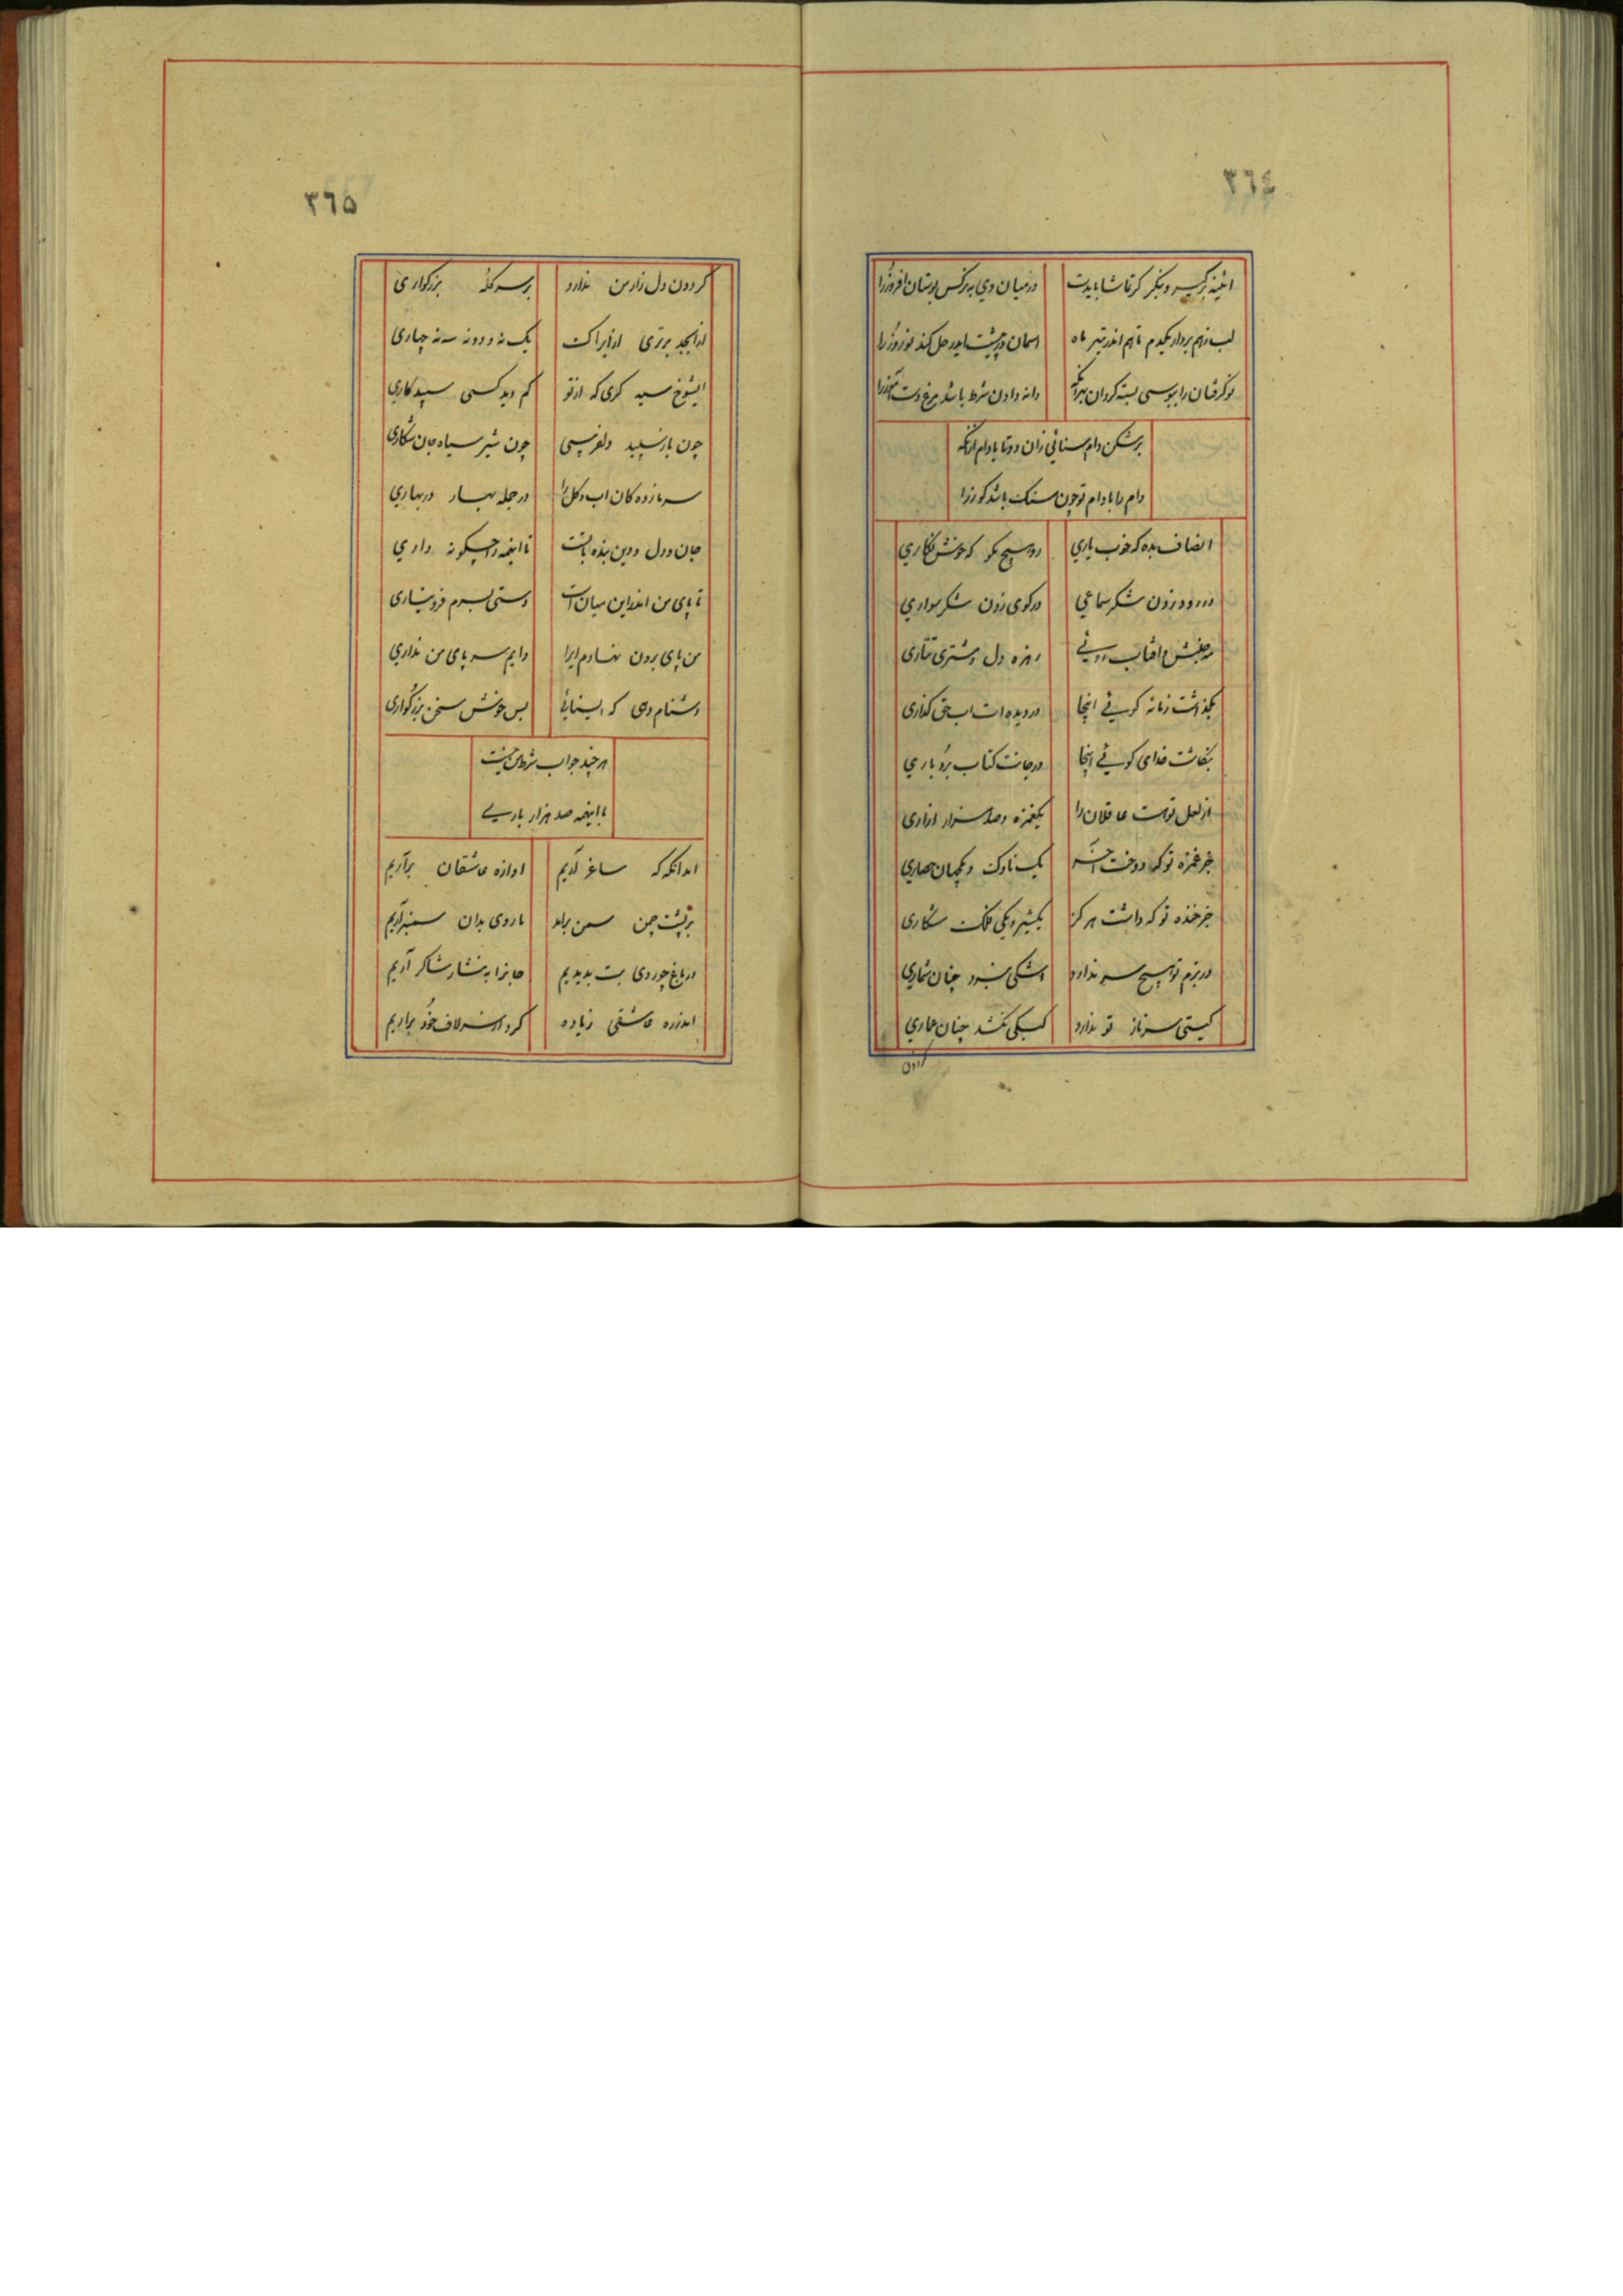 ٣٦٤
ائینه برگیر و بنگر گر تماشا بایدت در میان دی به نرکس بوستان افروز را
لب ز هم بردار یکدم تا هم اندر تیر ماه اسمان در پشت ایدر حمل کند نوروز را
نوگرفتان را ببوسی بسته گردان بهر انکه دانه دادن شرط باشد مرغ دست آموز را
برشکن دام سنائی زان دو تا بادام ازانکه
دام را بادام تو چون سنک باشد کوز را
انصاف بده که خوب یاری رو هیچ مگو که خوش نگاری
در رود زدن شکر سماعی در کوی زدن شکر سواری
مه جنبش و افتاب روئی زهره دل و مشتری نثاری
بگذاشت زمانه گوئی اینجا در دیده ات اب حق گذاری
بنگاشت خدای گوئی اینجا در جانت کتاب بردباری
از لعل تو است عاقلان را یکغمزه و صد هزار ازاری
جز غمزه تو که دوخت اخر یک ناوک و یکجهان حصاری
جز خنده تو که داشت هرکز یکشیر و یکی فلک شکاری
در بزم تو هیچ سر ندارد اشکی نبرد چنان شماری
کیتی سر ناز تو ندارد کبکی نکشد چنان عماری
کردون
٣٦٥
کردون دل زار من ندارد بر سر کله بزرگواری
از ابجد برتری ازیراک یک نه و دو نه سه نه چهاری
ایشوخ سیه گری که از تو کم دید کسی سپید کاری
چون باز سپید دلفریبی چون شیر سیاه جان شکاری
سرما زده کان اب و گل را در جمله بهار در بهاری
جان و دل و دین بنده با تست تا اینهمه را چگونه داری
تا پای من اندراین میان است دستی بسرم فرو نیاری
من پای برون نهادم ایرا دایم سر پای من نداری
دشنام دهی که ایسنائی بس خوش سخن بزرگواری
هر چند جواب شرط من نیست
با اینهمه صد هزار باری
امدانگه که ساغر آریم اوازه عاشقان برآریم
بر پشت چمن سمن برامد ما روی بدان سمنبر آریم
در باغ چو روی بت بدیدیم جانرا به نثار شاکر آریم
اندر ره عاشقی زیاده کرد از سر لاف خود براریم